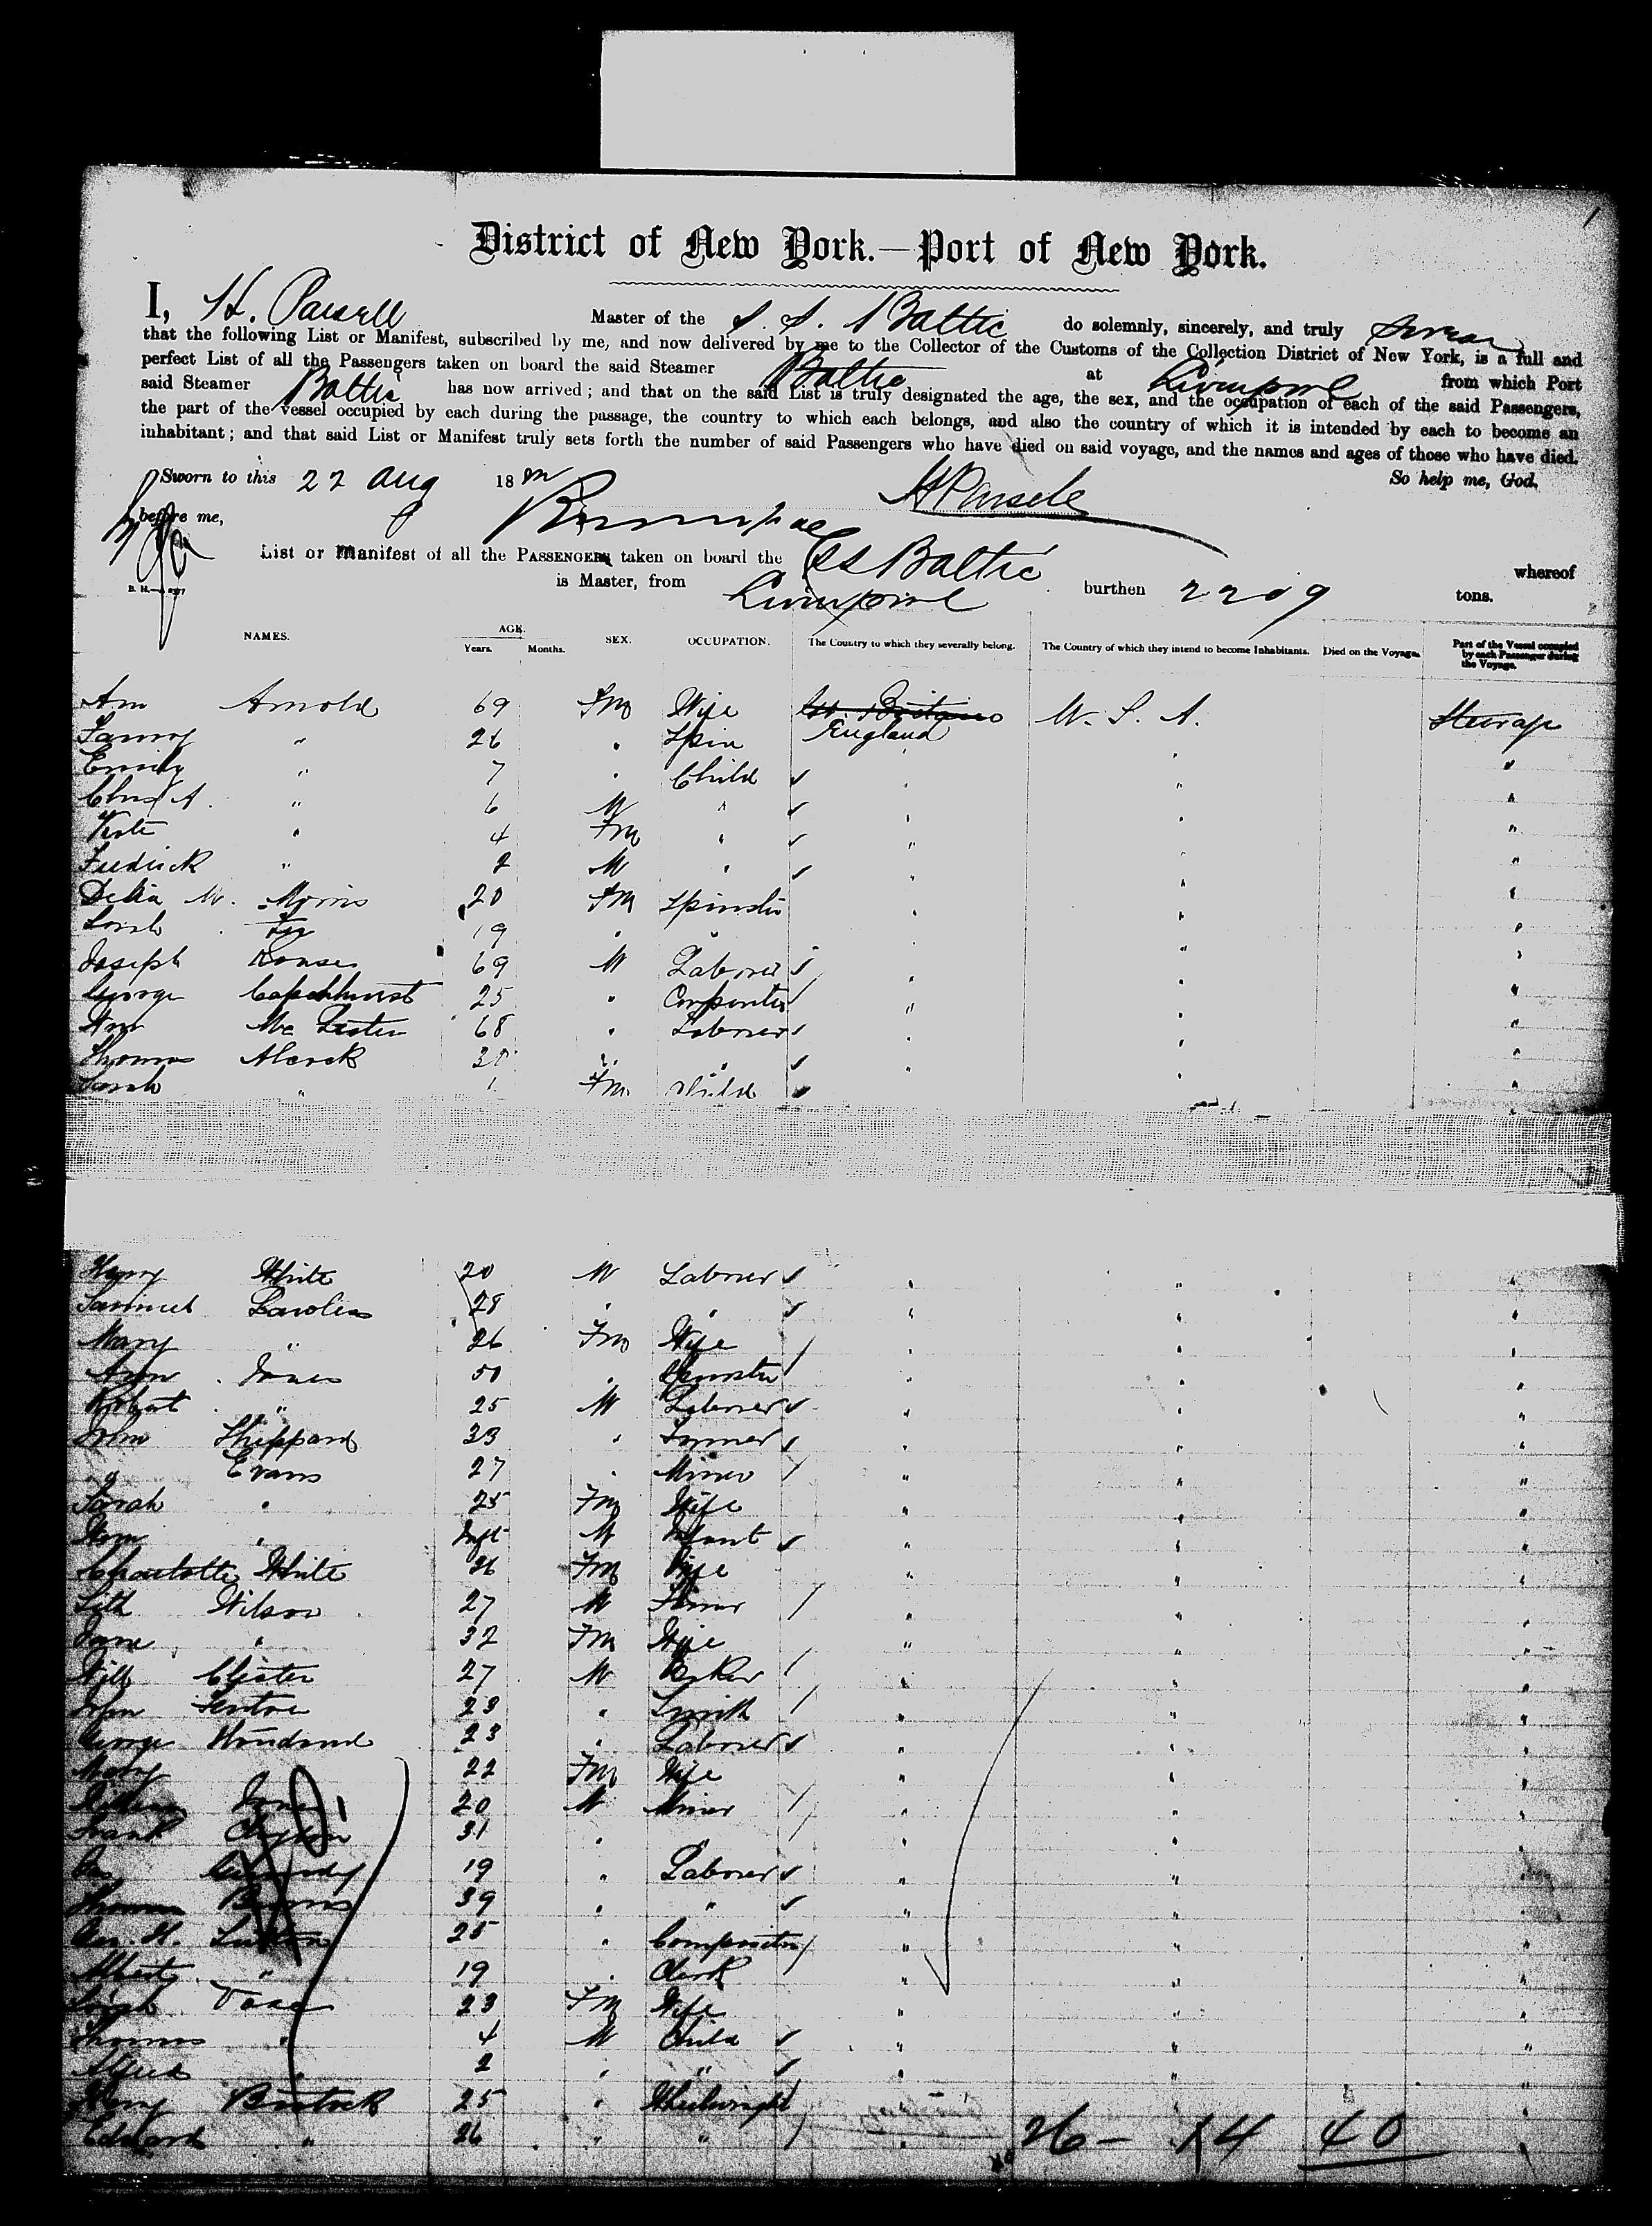 District of New York.—Port of New York.
I, H. Parsell Master of the S. S. Baltic do solemnly, sincerely, and truly swear
that the following List or Manifest, subscribed by me, and now delivered by me to the Collector of the Customs of the Collection District of New York, is a full and
perfect List of all the Passengers taken on board the said Steamer Baltic at Liverpool from which Port
said Steamer Baltic has now arrived; and that on the said List is truly designated the age, the sex, and the occupation of each of the said Passengers,
the part of the vessel occupied by each during the passage, the country to which each belongs, and also the country of which it is intended by each to become an
inhabitant; and that said List or Manifest truly sets forth the number of said Passengers who have died on said voyage, and the names and ages of those who have died.
Sworn to this 22 Aug 18 So help me, God.
before me, H Parsell
List or Manifest of all the PASSENGERS taken on board the SS Baltic whereof
is Master, from Liverpool burthen 2209 tons.
NAMES. AGE. Years. Months. SEX. OCCUPATION. The Country to which they severally belong. The Country of which they intend to become Inhabitants. Died on the Voyage. Part of the Vessel occupied by each Passenger during the Voyage.
Ann Arnold 69 Fm Wife Gt. Britain U. S. A. Steerage
Fanny " 26 " Spin England " "
Emily " 7 " Child " " "
Chas A. " 6 M " " " "
" 4 Fm " " " "
Fredrick " 2 M " " " "
Delia M. Morris 20 Fm Spinster " " "
Sarah 19 " " " " "
Joseph 69 M Laborer " " "
George 25 " Carpenter " " "
Wm 68 " Laborer " " "
Thomas Alcock " " " " "
Sarah " 1 Fm Child " " "
Henry White 20 M Laborer " " "
Samuel 28 " " " " "
Mary " 26 Fm Wife " " "
Ann Jones 50 " Spinster " " "
Robert " 25 M Laborer " " "
John Sheppard 33 " Farmer " " "
" Evans 27 " Miner " " "
Sarah " 25 Fm Wife " " "
Wm " Inft M Infant " " "
Charlotte White 26 Fm Wife " " "
Seth Wilson 27 M " " "
Jane " 32 Fm Wife " " "
Will 27 M Baker " " "
John 23 " Smith " " "
George 23 " Laborer " " "
Mary 22 Fm Wife " " "
20 M Miner " " "
Frank 31 " " " "
19 " Laborer " " "
Thomas 39 " " " " "
Geo. H. 25 " Compositor " " "
Albert " 19 " Clerk " " "
Sarah 23 Fm Wife " " "
Thomas " 4 M Child " " "
Alfred " 2 " " " " "
Henry Bostock 25 " Wheelwright " "
Edward " 26 " " "
26 — 14 40